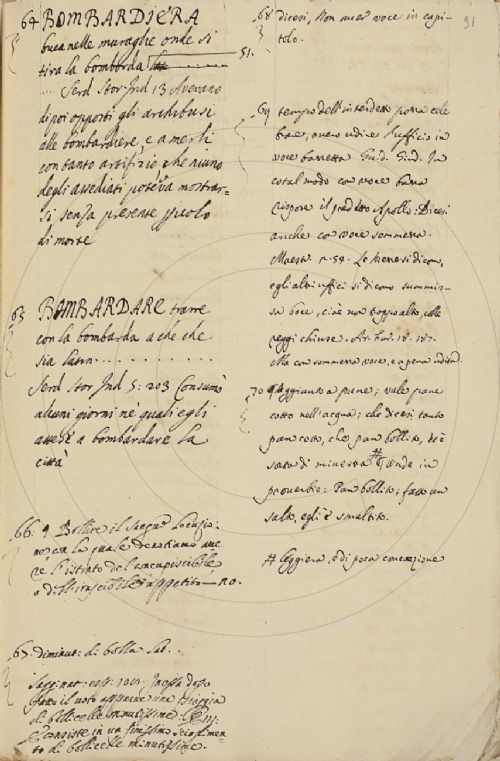 64 BOMBARDIERA
buca nelle muraglie onde si
tira la bombarda 51.
Serd Stor: Ind 13 Avevano
di poi opposti gli archibusi
alle bombardiere, e a merli
con tanto artifizio che niuno
degli assediati poteva mostrar-
si senza presente pericolo
di morte
65 BOMBARDARE trarre
con la bombarda a che che
sia latin.
Serd Stor Ind 5: 203 Consumò
alcuni giorni nè quali egli
attese a bombardare la
città
66. § Bollire il sangue Locuzio-
ne con la quale denotiamo ave
re l'istinto del concupiscibile
o dell'irascibile appetito — no.
67. diminut: di bolla Sal.
Sagg. nat. esp: Dopo
fatto il voto apparve una
di bollicelle minutissime.
consiste in un finissimo
to di bollicelle minutissime.
91
68 dicesi, Non aver voce in capi-
tolo.
69 tempo dell'interdetto possa cele
brare, ovvero udire l'uffizio in
voce bassetta Guid. Giud. In
cotal modo con voce bassa
rispose il predetto Apollo: Dicesi
anche con voce sommessa.
Maestr. 2. 54. Le Messe si dicono,
e gli altri uffici si dicono summis-
sa voce, cioè non troppo alto, colle
reggi chiuse. Ar. Fur. 18. 187.
Ma con sommessa voce, e a pena udita.
70 § Aggiunto a pane; vale pane
cotto nell'acqua; che dicesi tanto
pan cotto, che pan bollito, ed è
sorta di minestra # Onde in
proverbio: Pan bollito; fatto un
salto, egli è smaltito.
# leggiera, e di poca concezione